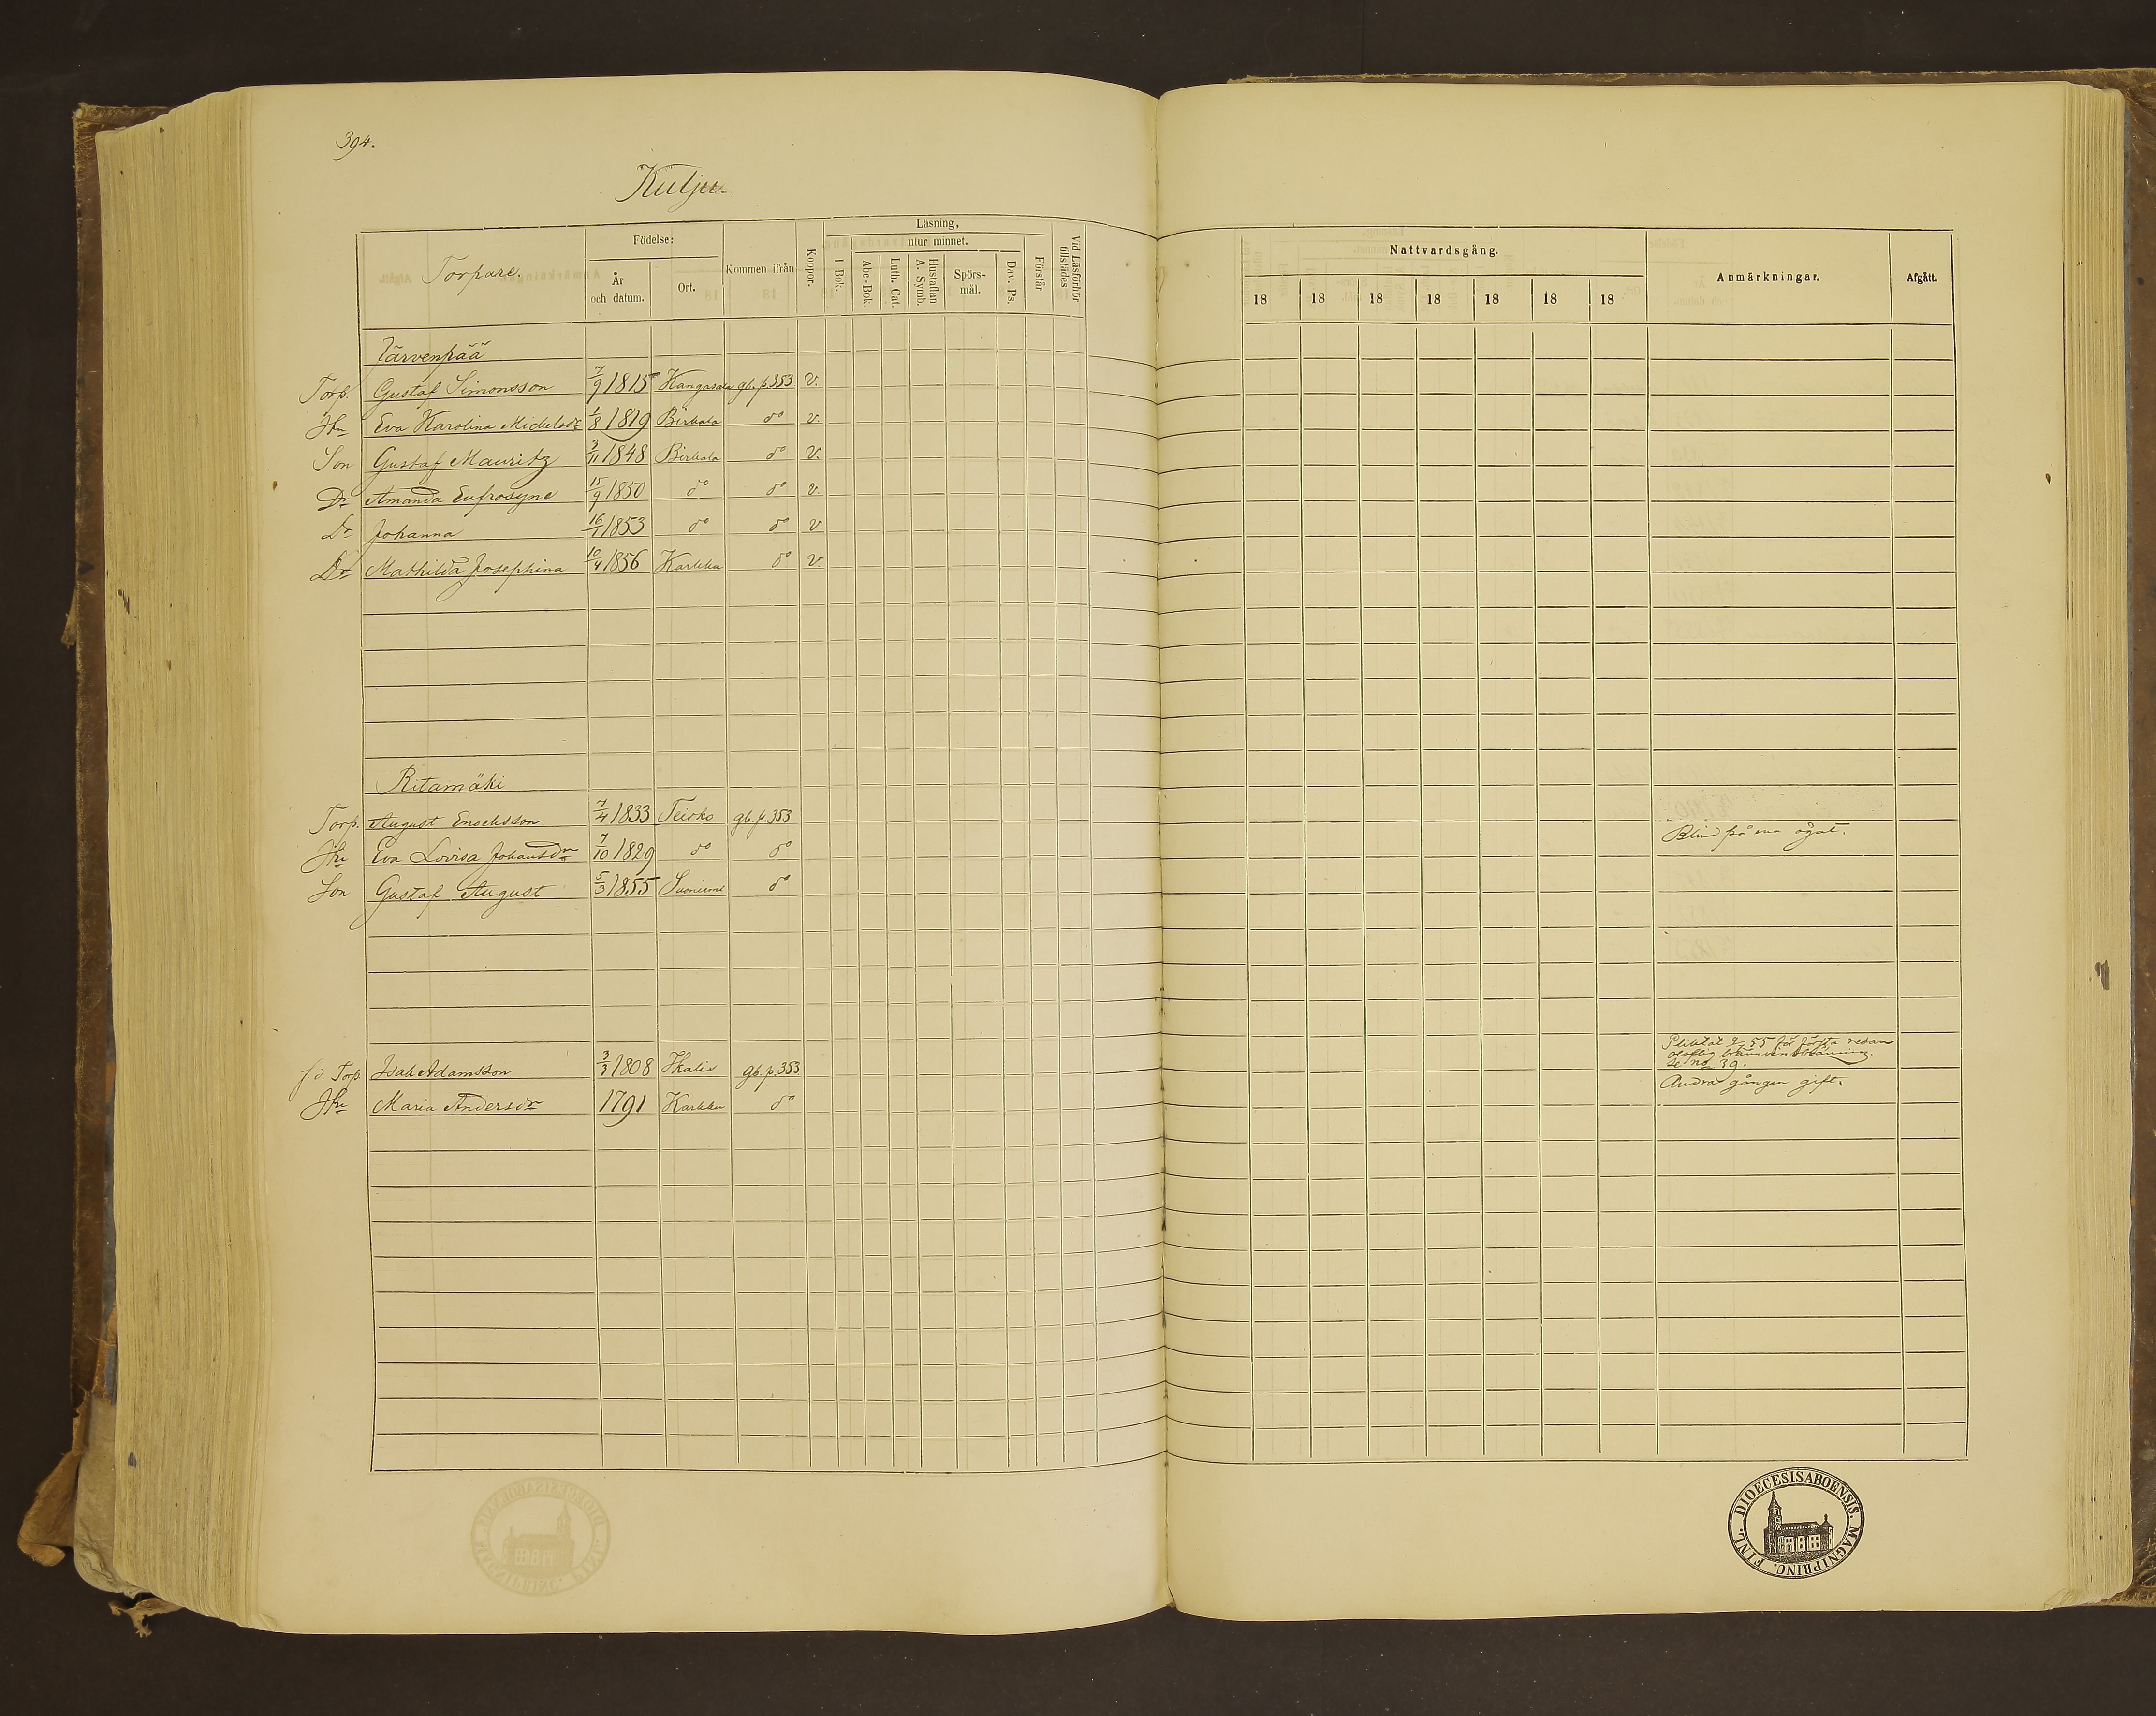 394.
Kulju.
Torpare.
Födelse:
År och datum.
Ort.
Kommen ifrån
Koppor.
Läsning,
utur minnet.
I Bok.
Abc-Bok.
Luth. Cat.
Hustaflan A. Symb.
Spörs-mål.
Dav. Ps.
Förstår
Vid Läsförhör tillstädes
Nattvardsgång.
18 18 18 18 18 18 18
Anmärkningar.
Afgått.
Järvenpää
Torp. Gustaf Simonsson 7/9 1815 Kangasala gb. p. 353 v.
Hu Eva Karolina Michelsdr 1/8 1819 Birkala do v.
Son Gustaf Mauritz 3/11 1848 Birkala do v.
Dr Amanda Eufrosyne 15/9 1850 do do v.
Dr Johanna 16/1 1853 do do v.
Dr Mathilda Josephina 10/4 1856 Karkku do v.
Ritamäki
Torp. August Enochsson 7/4 1833 Teisko gb. p. 353
Hu Eva Lovisa Johansdr 7/10 1829 do do Blind på ena ögat.
Son Gustaf August 5/3 1855 Suoniemi do
f.d. Torp Isak Adamsson 3/3 1808 Ikalis gb. p. 353 55 för första resan
olaflig bränvinsbränning.
se no 39.
Hu Maria Andersdr 1791 Karkku do Andra gången gift.
FINL. DIOECESISABOENSIS. MAGNIPRINC.